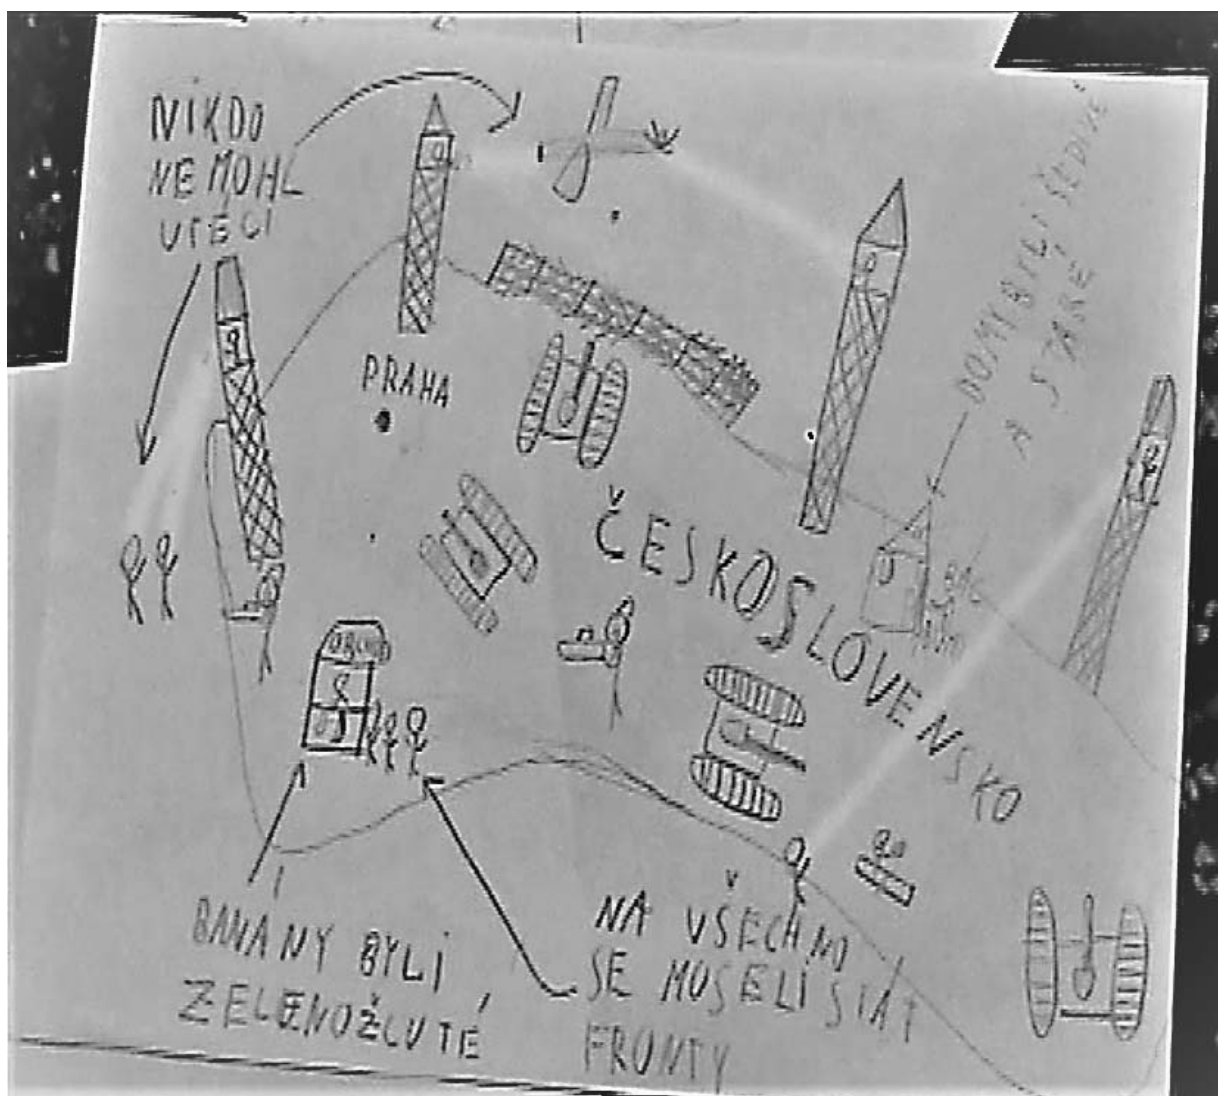 NIKDO
NEMOHL
UTÉCI
PRAHA
ČESKOSLOVENSKO
DOMY BYLI ŠEDIVÉ
A STARÉ
BANÁNY BYLI
ZELENOŽLUTÉ
NA VŠECHNO
SE MUSELI STÁT
FRONTY